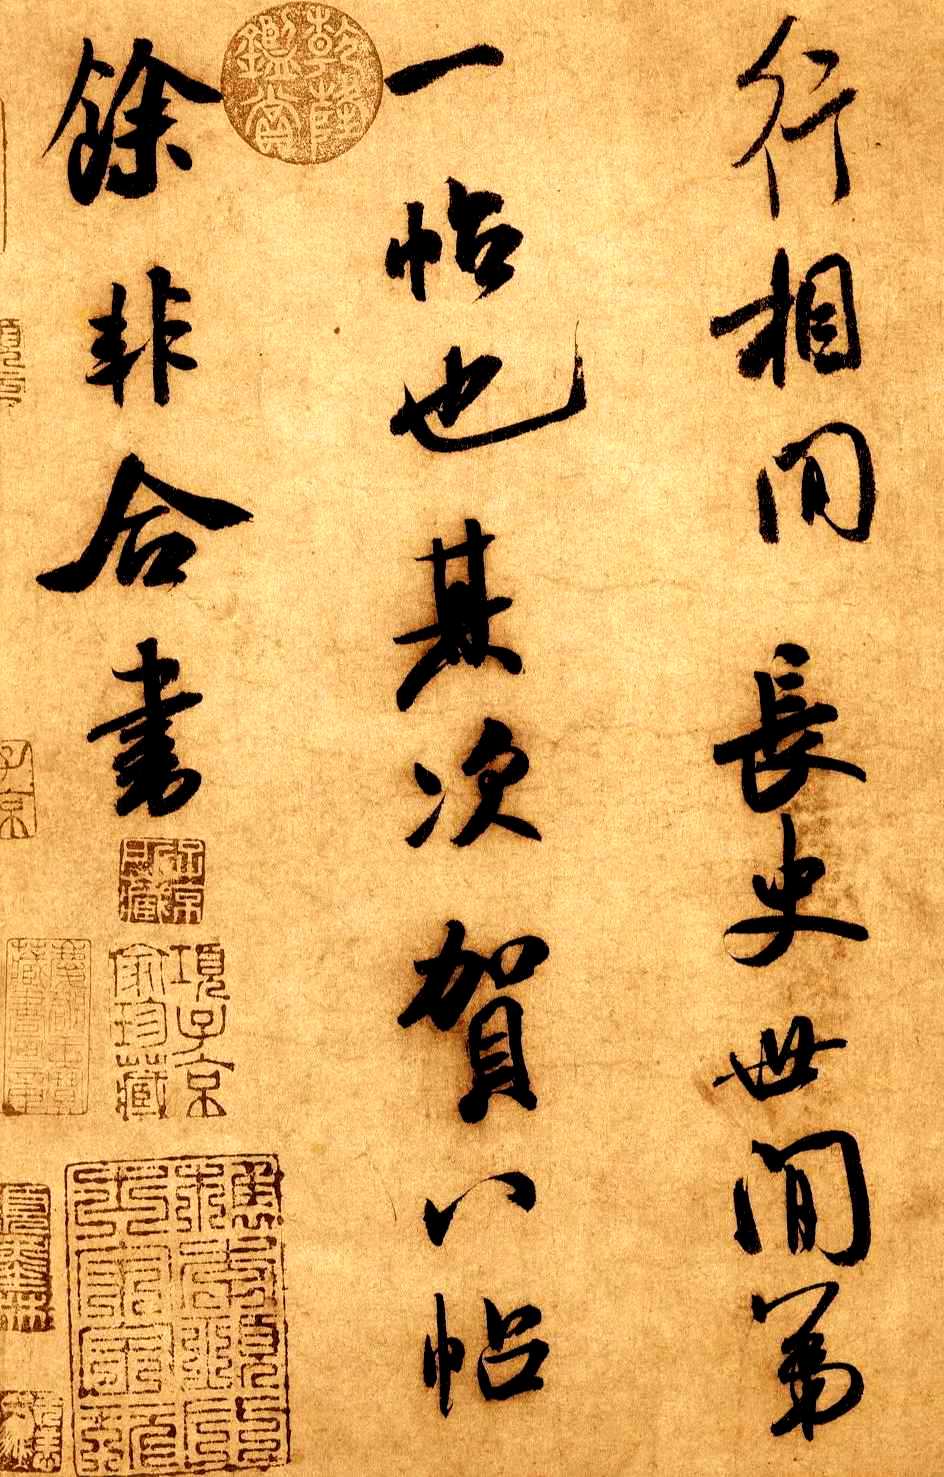 行相間長史世間第
一帖也其次賀八帖
餘非合書
乾隆鑑賞
子京所藏
項子京家珍藏
子京